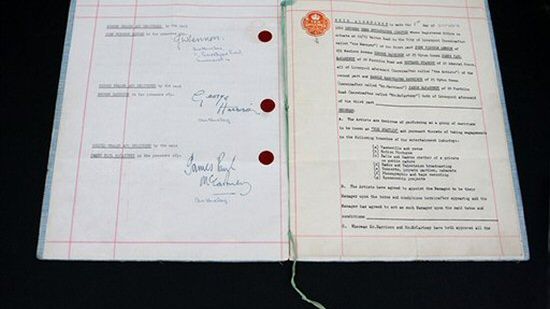 SIGNED SEALED AND DELIVERED by the said
JOHN WINSTON LENNON in the presence of:-
JWLennon
SIGNED SEALED AND DELIVERED by the said
GEORGE HARRISON in the presence of:-
George
Harrison
SIGNED SEALED AND DELIVERED by the said
JAMES PAUL McCARTNEY in the presence of:-
James Paul
McCartney
is made the day of
called "the Manager") of the first part JOHN WINSTON LENNON of
Road and RICHARD STARKEY of 10 Admiral Grove,
all of Liverpool aforesaid (hereinafter called "the Artists") of the
second part and HAROLD HARGREAVES HARRISON of
and JAMES McCARTNEY of 20 Forthlin
Road (hereinafter called "Mr.McCartney") both of Liverpool aforesaid
of the third part
WHEREAS:
A. The Artists are desirous of performing as a group of musicians
to be known as "THE BEATLES" and pursuant thereto of taking engagements
in the following branches of the entertainment industry:-
(a) Vaudeville and revue
(b) Motion Pictures
(c) Balls and dances either of a private
or public nature
(d) Radio and Television broadcasting
(e) Concerts, private parties, cabarets
(f) Phonographic and tape recording
(g) Sponsorship projects
B. The Artists have agreed to appoint the Manager to be their
Manager upon the terms and conditions hereinafter appearing and the
Manager has agreed to act as such Manager upon the said terms and
conditions
C. Whereas Mr.Harrison and Mr.McCartney have both approved all the